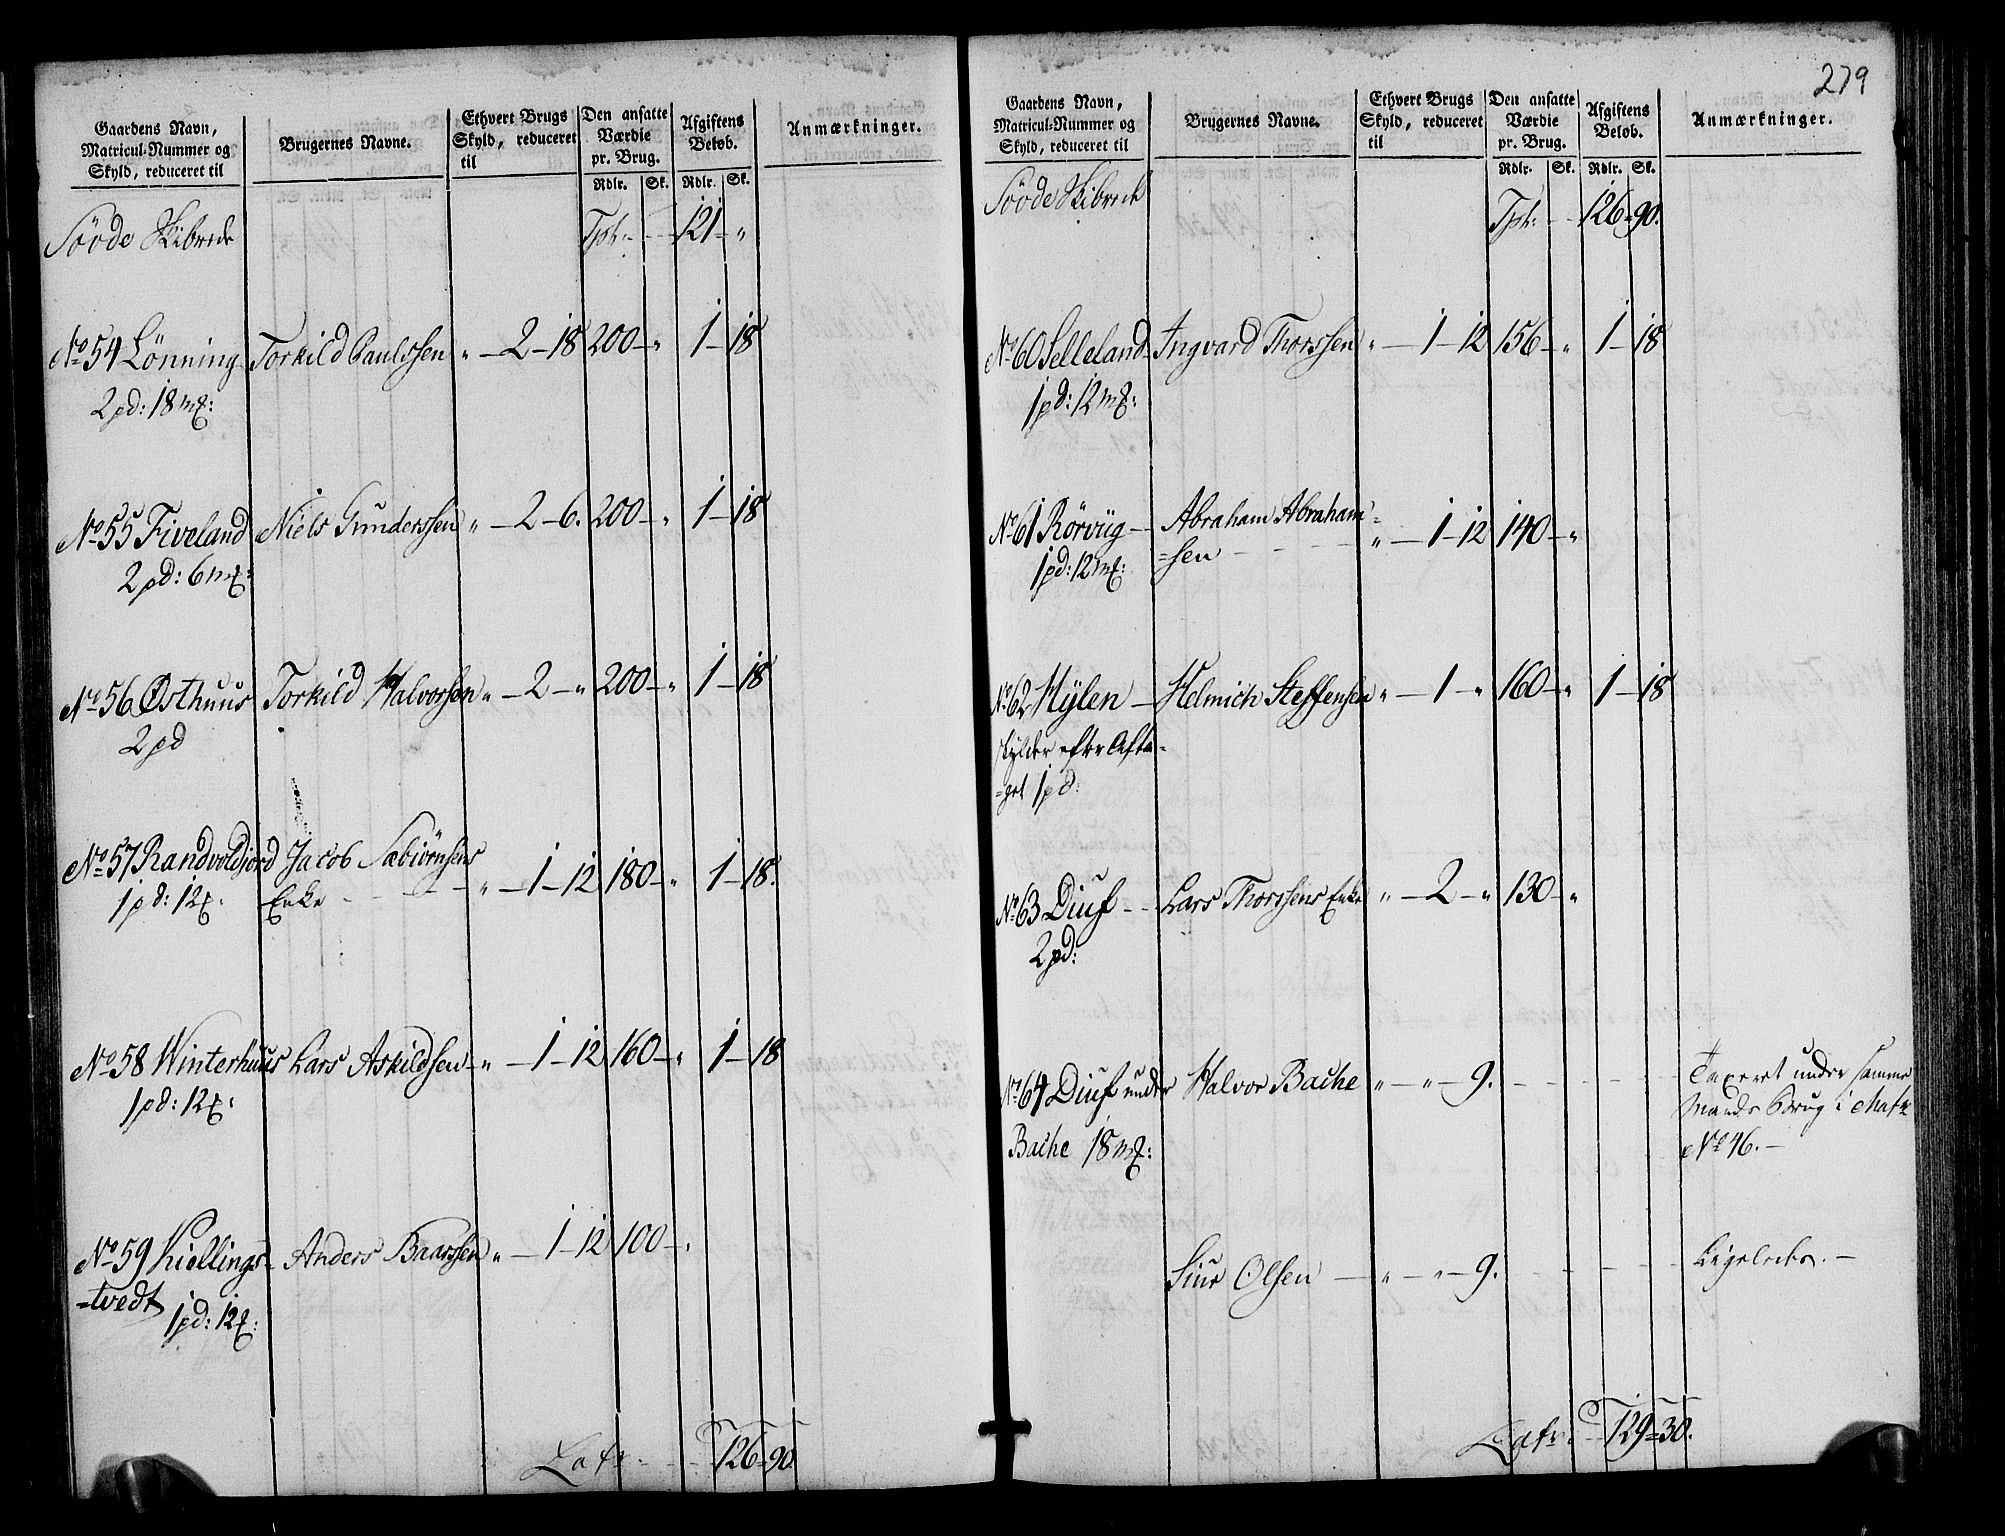 Gaardens Navn,
Matricul-Nummer og
Skyld, reduceret til
Brugernes Navne.
Ethvert Brugs
Skyld, reduceret
til
Den ansatte
Værdie
pr. Brug.
Rdlr. Sk.
Afgiftens
Beløb.
Rdlr. Sk.
Anmærkninger.
Sövde Skibrede Tpt: 121 "
No 54 Lönning Torkild Paulssen " 2 - 18 200 - " 1 - 18
2 pd: 18 mk:
No 55 Fiveland Niels Gunderssen " 2 - 6. 200 - " 1 - 18
2 pd: 6 mk:
No 56 Østhuus Torkild Halvorssen " 2 - " 200 - " 1 - 18
2 pd
No 57 Randvoldjord Jacob Sæbiörnsens
1 pd: 12 Enke " 1 - 12 180 - " 1 - 18.
No 58 Winterhuus Lars Askildsen " 1 - 12 160 - " 1 - 18
1 pd: 12
No 59 Kiellings- Anders Baarssen " 1 - 12 100 - "
=tvedt
1 pd: 12
Latr. 126 - 90.
279
Gaardens Navn,
Matricul-Nummer og
Skyld, reduceret til
Brugernes Navne.
Ethvert Brugs
Skyld, reduceret
til
Den ansatte
Værdie
pr. Brug.
Rdlr. Sk.
Afgiftens
Beløb.
Rdlr. Sk.
Anmærkninger.
Sövde Skibrede Tpt: 126 - 90.
No 60 Selleland Ingvard Thorssen " 1 - 12 156 - " 1 - 18
1 pd: 12 mk:
No 61 Rörviig Abraham Abraham=
1 pd: 12 mk: =sen " 1 - 12 140 - "
No 62 Hylen Helmich Steffensen " 1 - " 160 - " 1 - 18
skylder efter Afta=
=get 1 pd.
No 63 Diuf Lars Thorssens Enke " 2 - " 130 - "
2 pd:
No 64 Diuf under Halvor Bache " - " - 9. Taxeret under samme
Bache 18 mk: Mands Brug i Matr.
No 46.
Siur Olsen " - " - 9. Ligeledes.
Latr. 129 = 30.